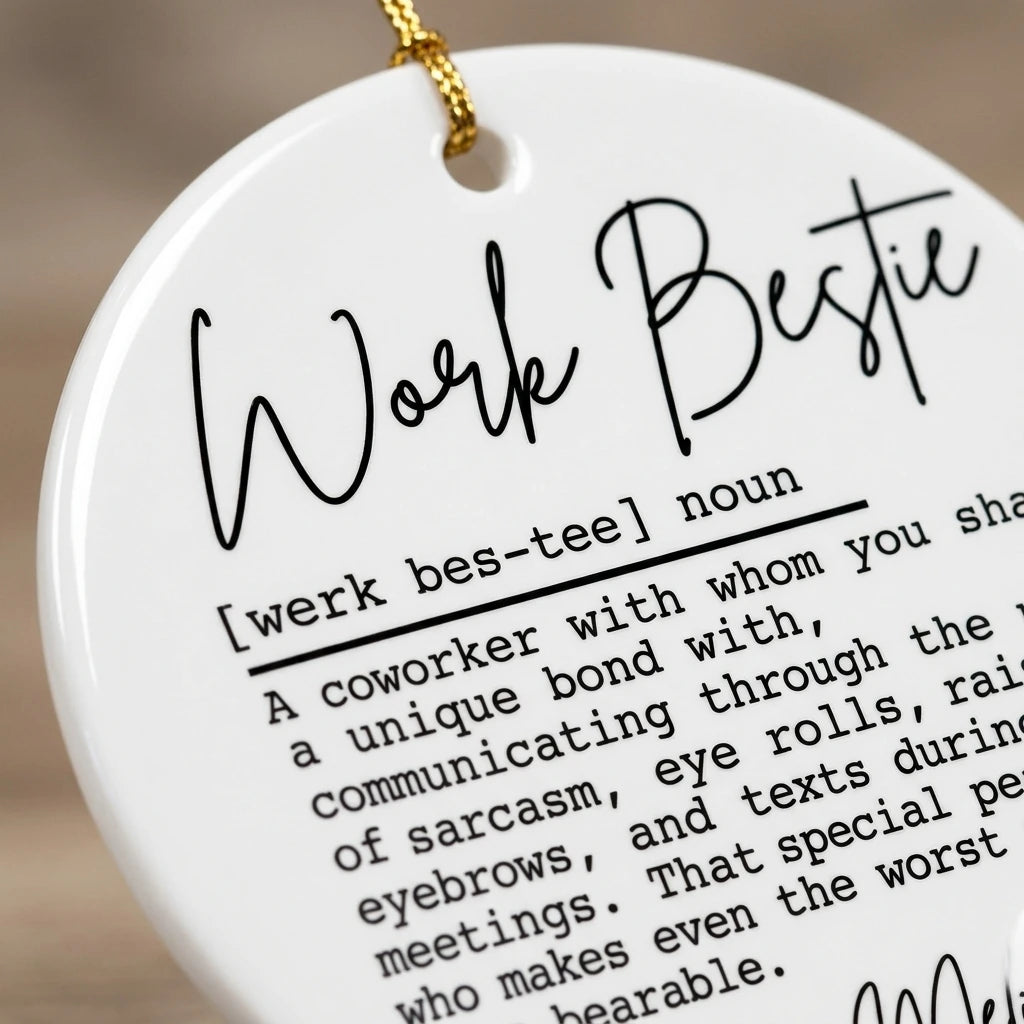 Work Bestie
[werk bes-tee] noun
A coworker with whom you
a unique bond with,
communicating through the
of sarcasm, eye rolls,
eyebrows, and texts during
meetings. That special
who makes even the worst
bearable.